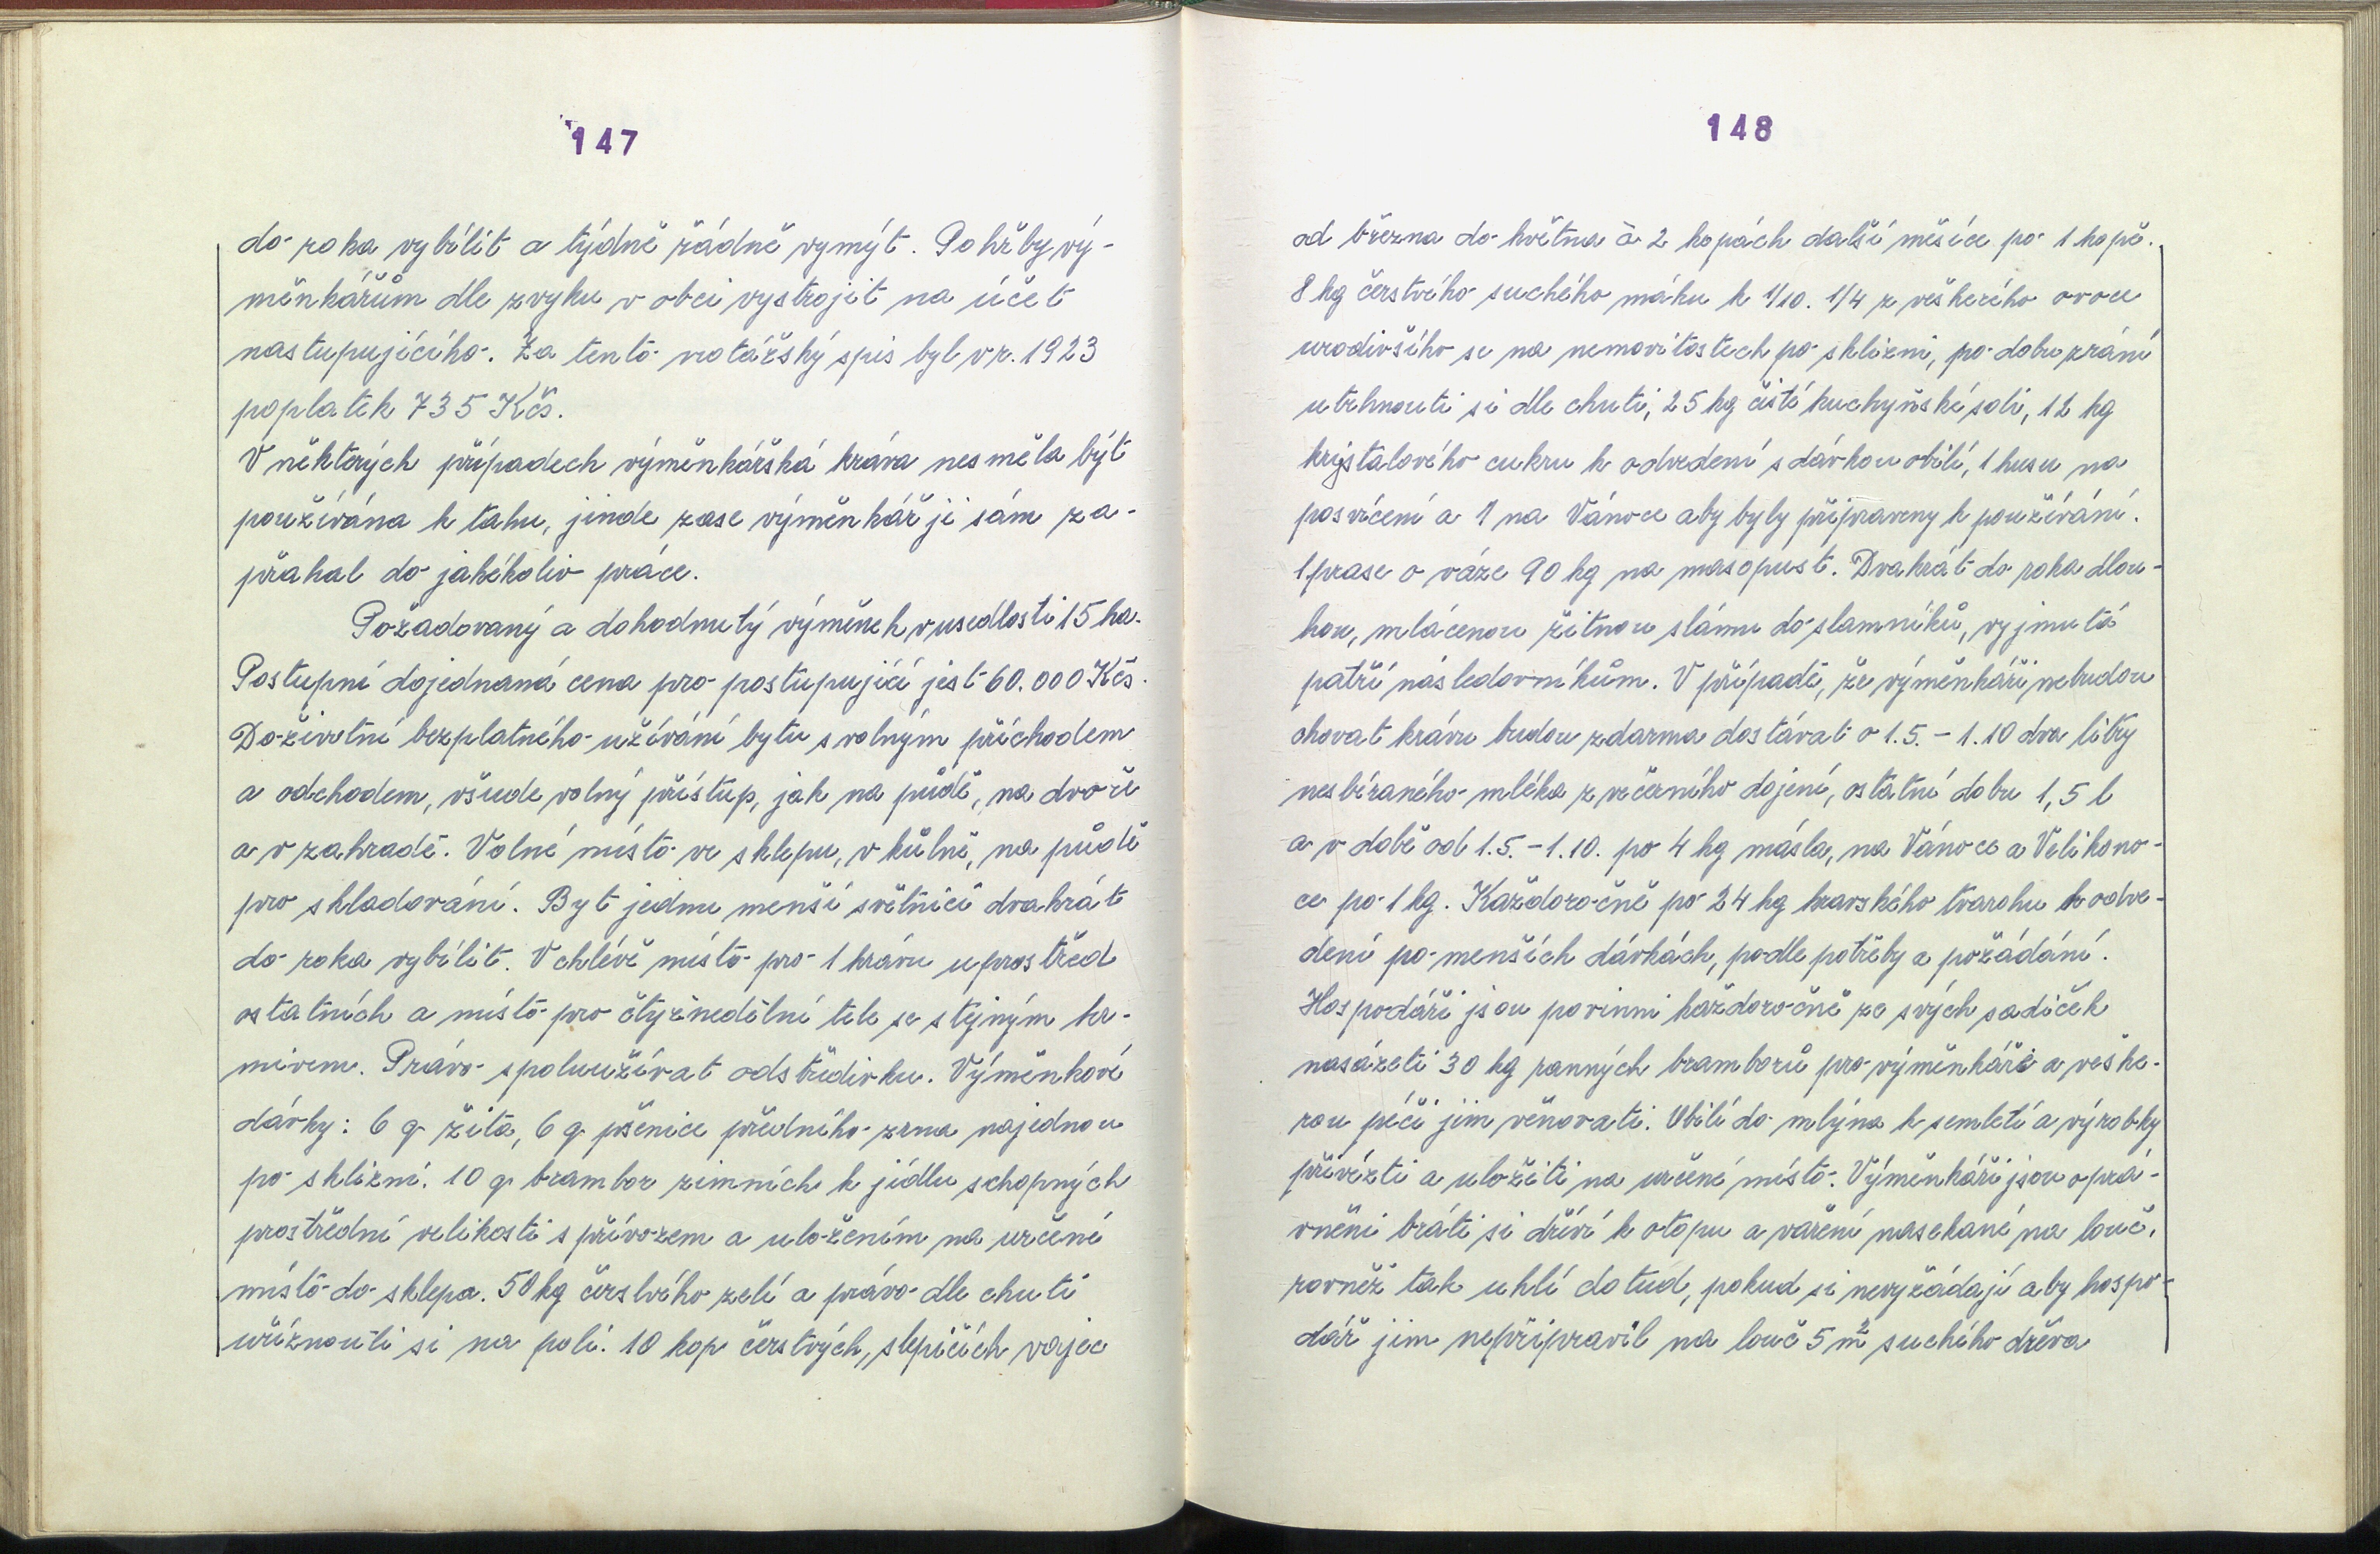 147
do roka vybílit a týdně řádně vymýt. Pohřby vý-
měnkářům dle zvyku v obci vystrojit na účet
nastupujícího. Za tento notářský spis byl v r. 1923
poplatek 735 Kčs.
V některých případech výměnkářská kráva nesměla být
používána k tahu, jinde zase výměnkář ji sám za-
přahal do jakékoliv práce.
Požadovaný a dohodnutý výměnek, v usedlosti 15 ha.
Postupní dojednaná cena pro postupující jest 60.000 Kčs.
Doživotní bezplatného užívání bytu s volným příchodem
a odchodem, všude volný přístup, jak na půdě, na dvoře
a v zahradě. Volné místo ve sklepu, v kůlně, na půdě
pro skladování. Byt jednu menší světnici dvakrát
do roka vybílit. V chlévě místo pro 1 krávu uprostřed
ostatních a místo pro čtyřnedělní tele se stejným kr-
mivem. Právo spoluužívat odstředivku. Výměnkové
dávky: 6 q žita, 6 q pšenice předního zrna najednou
po sklizni. 10 q brambor zimních k jídlu schopných
prostřední velikosti s přívozem a uložením na určené
místo do sklepa. 50 kg čerstvého zelí a právo dle chuti
uříznouti si na poli. 10 kop čerstvých, slepičích vajec
148
od března do května à 2 kopách další měsíce po 1 kopě.
8 kg čerstvého suchého máku k 1/10. 1/4 z veškerého ovoce
urodivšího se na nemovitostech po sklizni, po dobu zrání
utrhnouti si dle chuti, 25 kg čisté kuchyňské soli, 12 kg
krystalového cukru k odvedení s dávkou obilí, 1 husu na
posvícení a 1 na Vánoce aby byly připraveny k používání.
1 prase o váze 90 kg na masopust. Dvakrát do roka dlou-
hou, mlácenou žitnou slámu do slamníků, vyjmutá
patří následovníkům. V případě, že výměnkáři nebudou
chovat krávu budou zdarma dostávat o 1.5. - 1.10 dva litry
nesbíraného mléka z večerního dojení, ostatní dobu 1,5 l
a v době od 1.5. - 1.10. po 4 kg másla, na Vánoce a Velikono-
ce po 1 kg. Každoročně po 24 kg kravského tvarohu k odve-
dení po menších dávkách, podle potřeby a požádání.
Hospodáři jsou povinni každoročně ze svých sadiček
nasázeti 30 kg ranných bramborů pro výměnkáře a veške-
rou péči jim věnovati. Obilí do mlýna k semletí a výrobky
přivézti a uložiti na určené místo. Výměnkáři jsou oprá-
vněni bráti si dříví k otopu a vaření nasekané na louč,
rovněž tak uhlí dotud, pokud si nevyžádají aby hospo-
dář jim nepřipravil na louč 5 m2 suchého dřeva